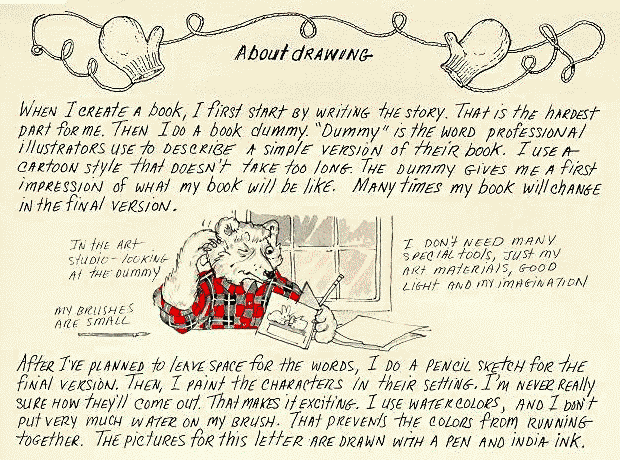 About drawing
When I create a book, I first start by writing the story. That is the hardest
part for me. Then I do a book dummy. "Dummy" is the word professional
illustrators use to describe a simple version of their book. I use a
cartoon style that doesn't take too long. The dummy gives me a first
impression of what my book will be like. Many times my book will change
in the final version.
In the art
studio - looking
at the dummy
My brushes
are small
I don't need many
special tools, just my
art materials, good
light and my imagination
After I've planned to leave space for the words, I do a pencil sketch for the
final version. Then, I paint the characters in their setting. I'm never really
sure how they'll come out. That makes it exciting. I use watercolors, and I don't
put very much water on my brush. That prevents the colors from running
together. The pictures for this letter are drawn with a pen and india ink.